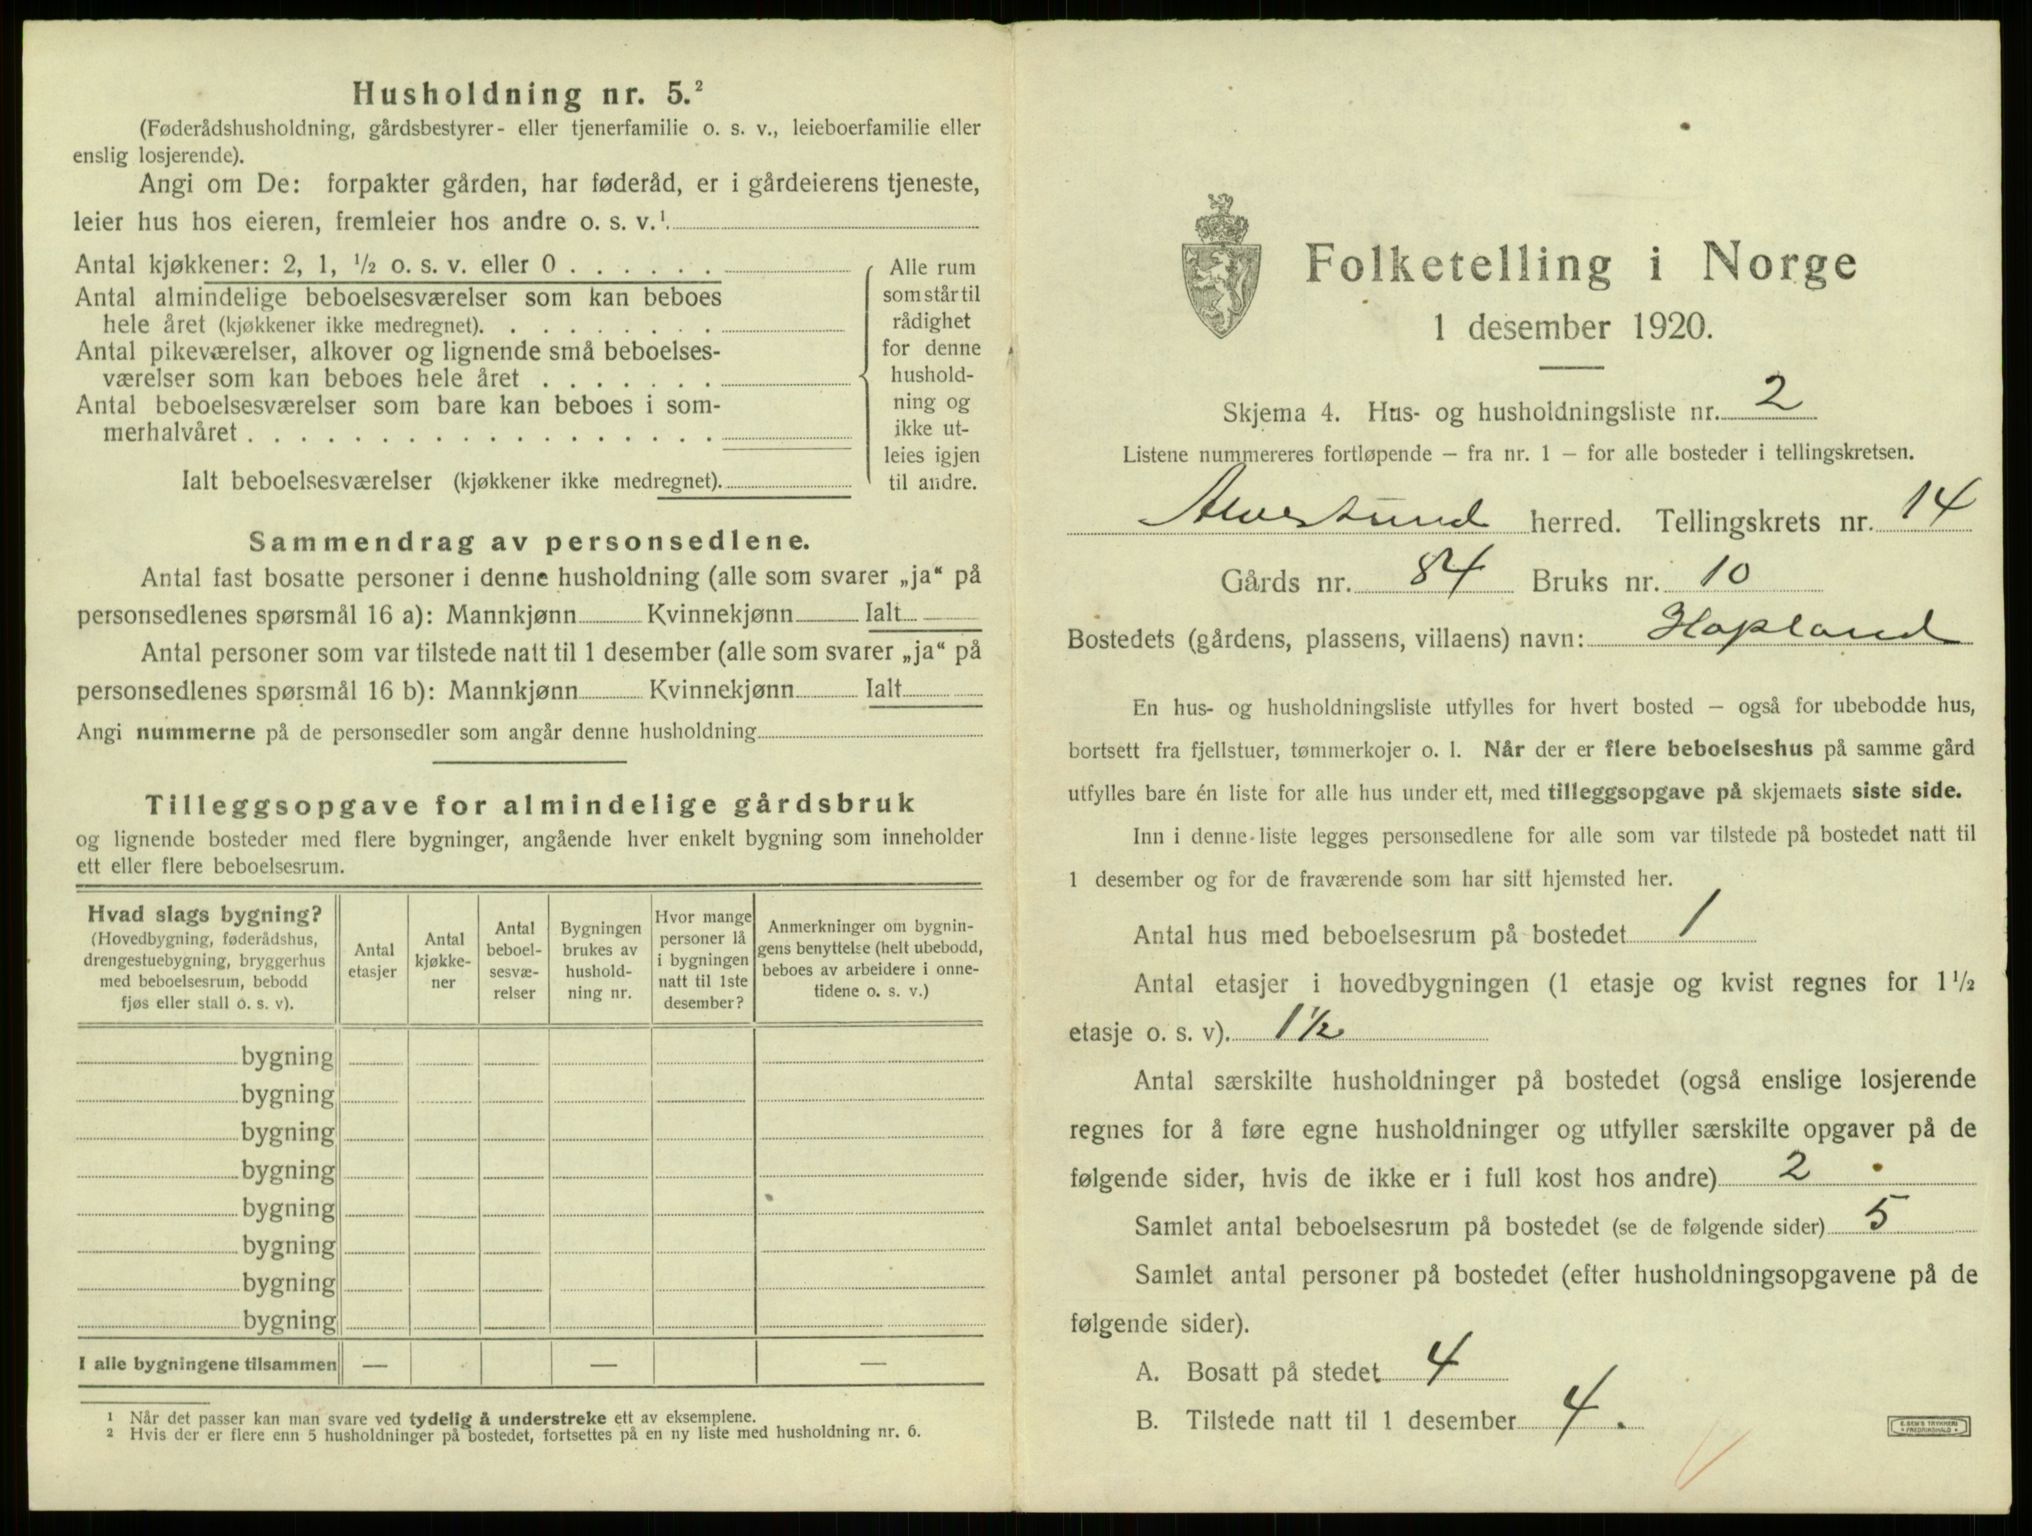 Husholdning nr. 5.²
(Føderådshusholdning, gårdsbestyrer- eller tjenerfamilie o. s. v., leieboerfamilie eller
enslig losjerende).
Angi om De: forpakter gården, har føderåd, er i gårdeierens tjeneste,
leier hus hos eieren, fremleier hos andre o. s. v.¹
Antal kjøkkener: 2, 1, ½ o. s. v. eller 0 . . . . . .
Antal almindelige beboelsesværelser som kan beboes
hele året (kjøkkener ikke medregnet). . . . . . . . . .
Antal pikeværelser, alkover og lignende små beboelses-
værelser som kan beboes hele året . . . . . . .
Antal beboelsesværelser som bare kan beboes i som-
merhalvåret . . . . . . . . . . . . . . . . . .
Ialt beboelsesværelser (kjøkkener ikke medregnet).
Alle rum
som står til
rådighet
for denne
hushold-
ning og
ikke ut-
leies igjen
til andre.
Sammendrag av personsedlene.
Antal fast bosatte personer i denne husholdning (alle som svarer „ja“ på
personsedlenes spørsmål 16 a): Mannkjønn Kvinnekjønn Ialt
Antal personer som var tilstede natt til 1 desember (alle som svarer „ja“ på
personsedlenes spørsmål 16 b): Mannkjønn Kvinnekjønn Ialt
Angi nummerne på de personsedler som angår denne husholdning
Tilleggsopgave for almindelige gårdsbruk
og lignende bosteder med flere bygninger, angående hver enkelt bygning som inneholder
ett eller flere beboelsesrum.
Hvad slags bygning?
(Hovedbygning, føderådshus,
drengestuebygning, bryggerhus
med beboelsesrum, bebodd
fjøs eller stall o. s. v).
Antal
etasjer
Antal
kjøkke-
ner
Antal
beboel-
sesvæ-
relser
Bygningen
brukes av
hushold-
ning nr.
Hvor mange
personer lå
i bygningen
natt til 1ste
desember?
Anmerkninger om bygnin-
gens benyttelse (helt ubebodd,
beboes av arbeidere i onne-
tidene o. s. v.)
bygning
bygning
bygning
bygning
bygning
bygning
bygning
bygning
I alle bygningene tilsammen — — —
¹ Når det passer kan man svare ved tydelig å understreke ett av eksemplene.
² Hvis der er flere enn 5 husholdninger på bostedet, fortsettes på en ny liste med husholdning nr. 6.
Folketelling i Norge
1 desember 1920.
Skjema 4. Hus- og husholdningsliste nr. 2
Listene nummereres fortløpende – fra nr. 1 – for alle bosteder i tellingskretsen.
Alversund herred. Tellingskrets nr. 14
Gårds nr. 84 Bruks nr. 10
Bostedets (gårdens, plassens, villaens) navn: Hopland
En hus- og husholdningsliste utfylles for hvert bosted – også for ubebodde hus,
bortsett fra fjellstuer, tømmerkojer o. l. Når der er flere beboelseshus på samme gård
utfylles bare én liste for alle hus under ett, med tilleggsopgave på skjemaets siste side.
Inn i denne liste legges personsedlene for alle som var tilstede på bostedet natt til
1 desember og for de fraværende som har sitt hjemsted her.
Antal hus med beboelsesrum på bostedet 1
Antal etasjer i hovedbygningen (1 etasje og kvist regnes for 1½
etasje o. s. v). 1½
Antal særskilte husholdninger på bostedet (også enslige losjerende
regnes for å føre egne husholdninger og utfyller særskilte opgaver på de
følgende sider, hvis de ikke er i full kost hos andre) 2
Samlet antal beboelsesrum på bostedet (se de følgende sider) 5
Samlet antal personer på bostedet (efter husholdningsopgavene på de
følgende sider).
A. Bosatt på stedet 4
B. Tilstede natt til 1 desember 4.
E. SEM'S TRYKKERI
FREDRIKSHALD